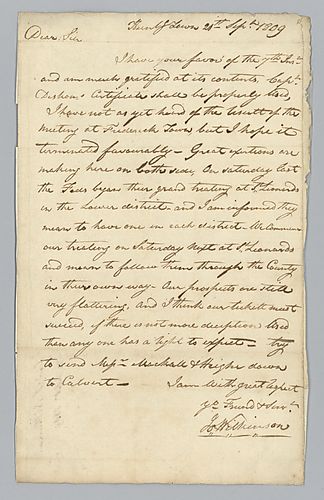 Hunt g Town 28th Sepr. 1809
Dear Sir
I have your favor of the 7th Inst.
and am much gratified at its contents, Capt.
Certificate shall be properly Used,
I have not as yet heard of the Result of the
Meeting at Frederick Town, but I hope it
terminated favourably — Great exertions are
making here on both sides, On Saturday last
the Feds began their grand treating at St Leonards
in the Lower district and I am informed they
mean to have one in each district. We Commence
our treating on Saturday Next at St Leonards
and mean to follow them through the County
in their own way. Our prospects are still
very flattering, And I think our ticket must
succeed, if there is not more deception Used
than any one has a right to expect — try
to send Messrs. Mackall & Wright down
to Calvert — I am With great respect
Yr Friend & Servt.
Jo Wilkinson